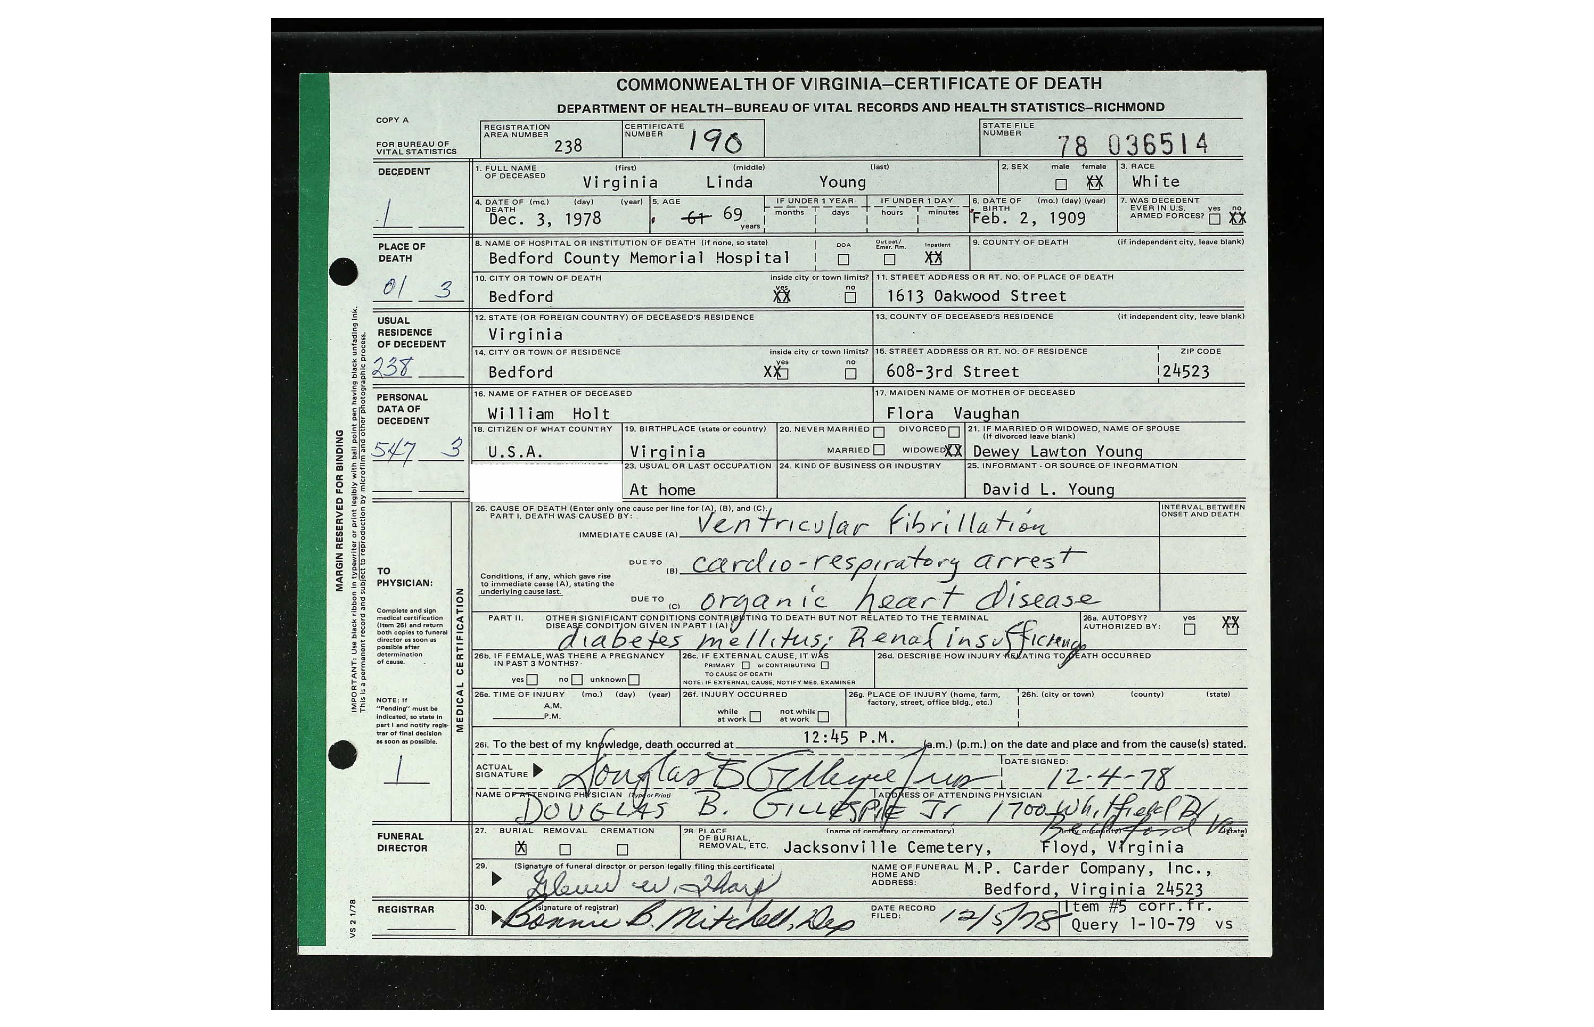 COMMONWEALTH OF VIRGINIA—CERTIFICATE OF DEATH
DEPARTMENT OF HEALTH—BUREAU OF VITAL RECORDS AND HEALTH STATISTICS—RICHMOND
COPY A
FOR BUREAU OF VITAL STATISTICS
REGISTRATION AREA NUMBER 238
CERTIFICATE NUMBER 190
STATE FILE NUMBER 78 036514
DECEDENT
1
1. FULL NAME OF DECEASED (first) (middle) (last)
Virginia Linda Young
2. SEX male female XX
3. RACE White
4. DATE OF DEATH (mo.) (day) (year) Dec. 3, 1978
5. AGE 61 69 years
IF UNDER 1 YEAR months days
IF UNDER 1 DAY hours minutes
6. DATE OF BIRTH (mo.) (day) (year) Feb. 2, 1909
7. WAS DECEDENT EVER IN U.S. ARMED FORCES? yes no XX
PLACE OF DEATH
01 3
8. NAME OF HOSPITAL OR INSTITUTION OF DEATH (if none, so state)
Bedford County Memorial Hospital
DOA Out pat/ Emer. Rm. Inpatient XX
9. COUNTY OF DEATH (if independent city, leave blank)
10. CITY OR TOWN OF DEATH inside city or town limits? yes no
Bedford XX
11. STREET ADDRESS OR RT. NO. OF PLACE OF DEATH
1613 Oakwood Street
USUAL RESIDENCE OF DECEDENT
238
12. STATE (OR FOREIGN COUNTRY) OF DECEASED'S RESIDENCE
Virginia
13. COUNTY OF DECEASED'S RESIDENCE (if independent city, leave blank)
14. CITY OR TOWN OF RESIDENCE inside city or town limits? yes no
Bedford XX
15. STREET ADDRESS OR RT. NO. OF RESIDENCE ZIP CODE
608-3rd Street 24523
PERSONAL DATA OF DECEDENT
547 3
16. NAME OF FATHER OF DECEASED
William Holt
17. MAIDEN NAME OF MOTHER OF DECEASED
Flora Vaughan
18. CITIZEN OF WHAT COUNTRY
U.S.A.
19. BIRTHPLACE (state or country)
Virginia
20. NEVER MARRIED DIVORCED
MARRIED WIDOWED XX
21. IF MARRIED OR WIDOWED, NAME OF SPOUSE (If divorced leave blank)
Dewey Lawton Young
23. USUAL OR LAST OCCUPATION
At home
24. KIND OF BUSINESS OR INDUSTRY
25. INFORMANT - OR SOURCE OF INFORMATION
David L. Young
MARGIN RESERVED FOR BINDING
IMPORTANT: Use black ribbon in typewriter or print legibly with ball point pen having black unfading ink.
This is a permanent record and subject to reproduction by microfilm and other photographic process.
TO PHYSICIAN:
Complete and sign medical certification (Item 26) and return both copies to funeral director as soon as possible after determination of cause.
NOTE: If "Pending" must be indicated, so state in part I and notify registrar of final decision as soon as possible.
1
MEDICAL CERTIFICATION
26. CAUSE OF DEATH (Enter only one cause per line for (A), (B), and (C).
PART I. DEATH WAS CAUSED BY:
INTERVAL BETWEEN ONSET AND DEATH
IMMEDIATE CAUSE (A) Ventricular Fibrillation
DUE TO (B) cardio-respiratory arrest
Conditions, if any, which gave rise to immediate cause (A), stating the underlying cause last.
DUE TO (C) organic heart disease
PART II. OTHER SIGNIFICANT CONDITIONS CONTRIBUTING TO DEATH BUT NOT RELATED TO THE TERMINAL DISEASE CONDITION GIVEN IN PART I (A)
diabetes mellitus; Renal insufficiency
26a. AUTOPSY? yes no
AUTHORIZED BY: XX
26b. IF FEMALE, WAS THERE A PREGNANCY IN PAST 3 MONTHS?
yes no unknown
26c. IF EXTERNAL CAUSE, IT WAS
PRIMARY or CONTRIBUTING
TO CAUSE OF DEATH
NOTE: IF EXTERNAL CAUSE, NOTIFY MED. EXAMINER
26d. DESCRIBE HOW INJURY RELATING TO DEATH OCCURRED
26e. TIME OF INJURY (mo.) (day) (year)
A.M.
P.M.
26f. INJURY OCCURRED
while at work not while at work
26g. PLACE OF INJURY (home, farm, factory, street, office bldg., etc.)
26h. (city or town) (county) (state)
26i. To the best of my knowledge, death occurred at 12:45 P.M. (a.m.) (p.m.) on the date and place and from the cause(s) stated.
ACTUAL SIGNATURE Douglas B Gillespie Jr MD
DATE SIGNED: 12-4-78
NAME OF ATTENDING PHYSICIAN (Type or Print) ADDRESS OF ATTENDING PHYSICIAN
DOUGLAS B. GILLESPIE Jr 1700 Whitfield Dr
Bedford Va
FUNERAL DIRECTOR
27. BURIAL REMOVAL CREMATION
X
28. PLACE OF BURIAL, REMOVAL, ETC. (name of cemetery or crematory) (city or county) (state)
Jacksonville Cemetery, Floyd, Virginia
29. (Signature of funeral director or person legally filing this certificate)
Glenn W. Sharp
NAME OF FUNERAL HOME AND ADDRESS: M.P. Carder Company, Inc.,
Bedford, Virginia 24523
REGISTRAR
30. (signature of registrar)
Bonnie B. Mitchell, Dep
DATE RECORD FILED: 12/5/78
Item #5 corr.fr.
Query 1-10-79 vs
VS 2 1/78